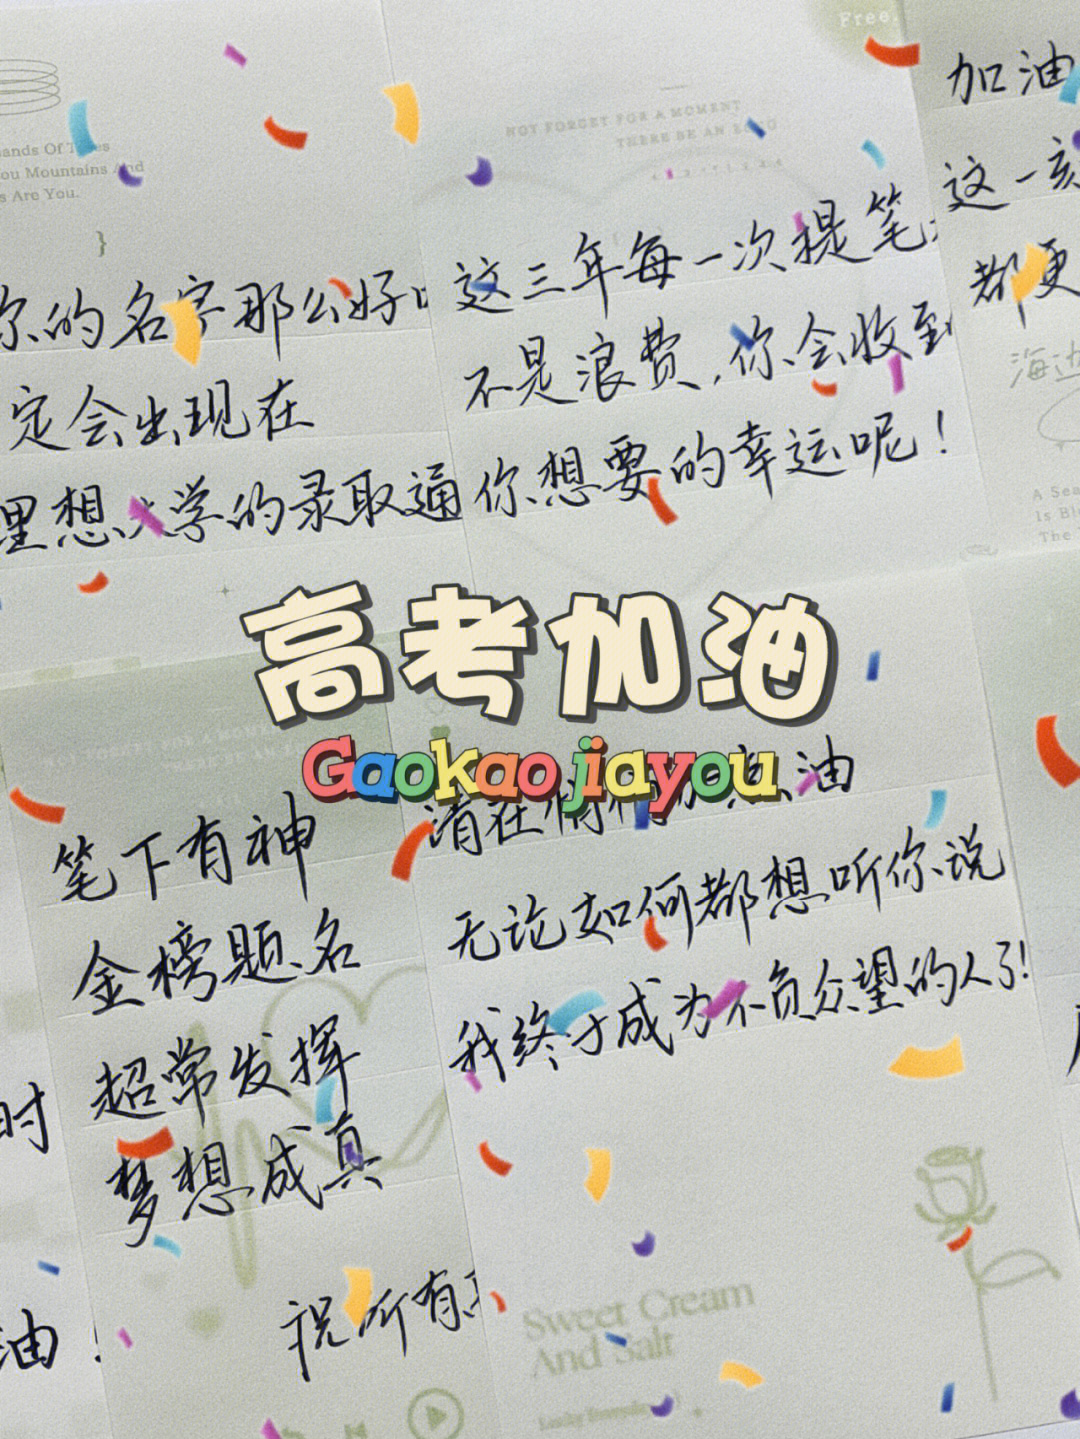 Free.
ands Of
ou Mountains And
s Are You.
}
你的名字那么好
定会出现在
理想大学的录取通
NOT FORGET FOR A MOMENT
THERE BE AN
这三年每一次提笔
不是浪费，你会收到
你想要的幸运呢！
加油
这一刻
都更
海边
A Sea
Is Bl
The
高考加油
Gaokao jiayou
笔下有神
金榜题名
超常发挥
梦想成真
祝所有
时
油！
油
无论如何都想听你说
我终于成为不负众望的人了！
Sweet Cream
And Salt